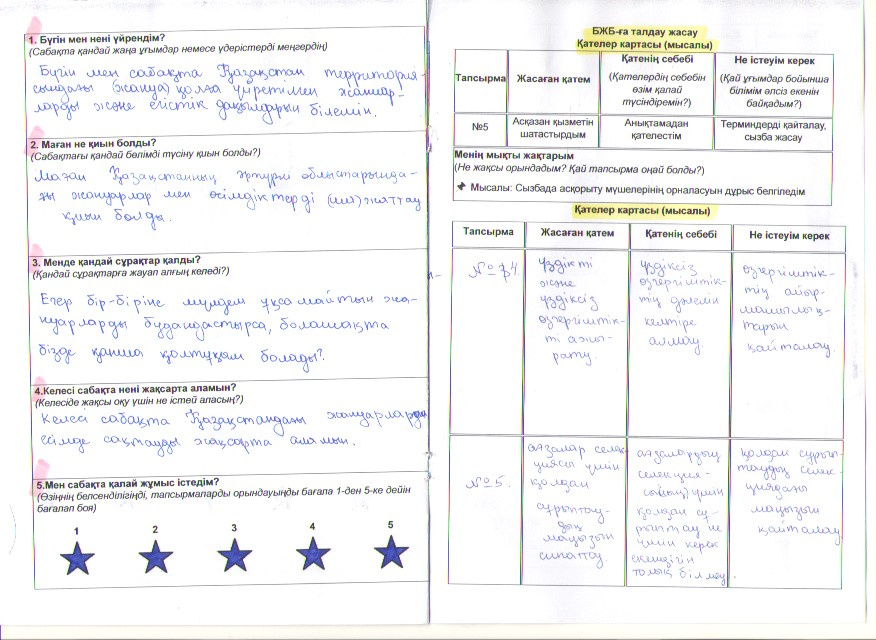 1. Бүгін мен нені үйрендім?
(Сабақта қандай жаңа ұғымдар немесе үдерістерді меңгердің)
Бүгін мен сабақта Қазақстан территория-
сындағы (жануа) қолға үйретілген жануар-
ларды және егістік дақылдарын білемін.
2. Маған не қиын болды?
(Сабақтағы қандай бөлімді түсіну қиын болды?)
Маған Қазақстанның әртүрлі облыстарында-
ғы жануарлар мен өсімдіктерді жаттау
қиын болды.
3. Менде қандай сұрақтар қалды?
(Қандай сұрақтарға жауап алғың келеді?)
Егер бір-біріне мүлдем ұқсамайтын жа-
нуарларды будандастырса, болашақта
бізде қанша қолтұқым болады?
4.Келесі сабақта нені жақсарта аламын?
(Келесіде жақсы оқу үшін не істей аласың?)
Келесі сабақта Қазақстандағы жануарларды
есімде сақтауды жақсарта аламын.
5.Мен сабақта қалай жұмыс істедім?
(Өзіңнің белсенділігіңді, тапсырмаларды орындауыңды бағала 1-ден 5-ке дейін
бағалап боя)
1 2 3 4 5
БЖБ-ға талдау жасау
Қателер картасы (мысалы)
Тапсырма Жасаған қатем Қатенің себебі Не істеуім керек
(Қателердің себебін
өзім қалай
түсіндіремін?)
(Қай ұғымдар бойынша
білімім әлсіз екенін
байқадым?)
№5 Асқазан қызметін
шатастырдым
Анықтамадан
қателестім
Терминдерді қайталау,
сызба жасау
Менің мықты жақтарым
(Не жақсы орындадым? Қай тапсырма оңай болды?)
Мысалы: Сызбада асқорыту мүшелерінің орналасуын дұрыс белгіледім
Қателер картасы (мысалы)
Тапсырма Жасаған қатем Қатенің себебі Не істеуім керек
үздікті
және
үздіксіз
өзгергіштік-
ті ажы-
рату.
үздіксіз
өзгергіштік-
тің дәлелін
келтіре
алмау.
өзгергіштік-
тің айыр-
машылық-
тарын
қайталау.
№5.
ағзалар селек-
циясы үшін
қолдан
сұрыптау-
дың
маңызын
сипаттау
ағзалардың
селекция-
үшін
қолдан сұ-
рыптау не
үшін керек
екендігін
толық білмеу.
қолдан сұрып-
таудың селек-
циядағы
маңызын
қайталау